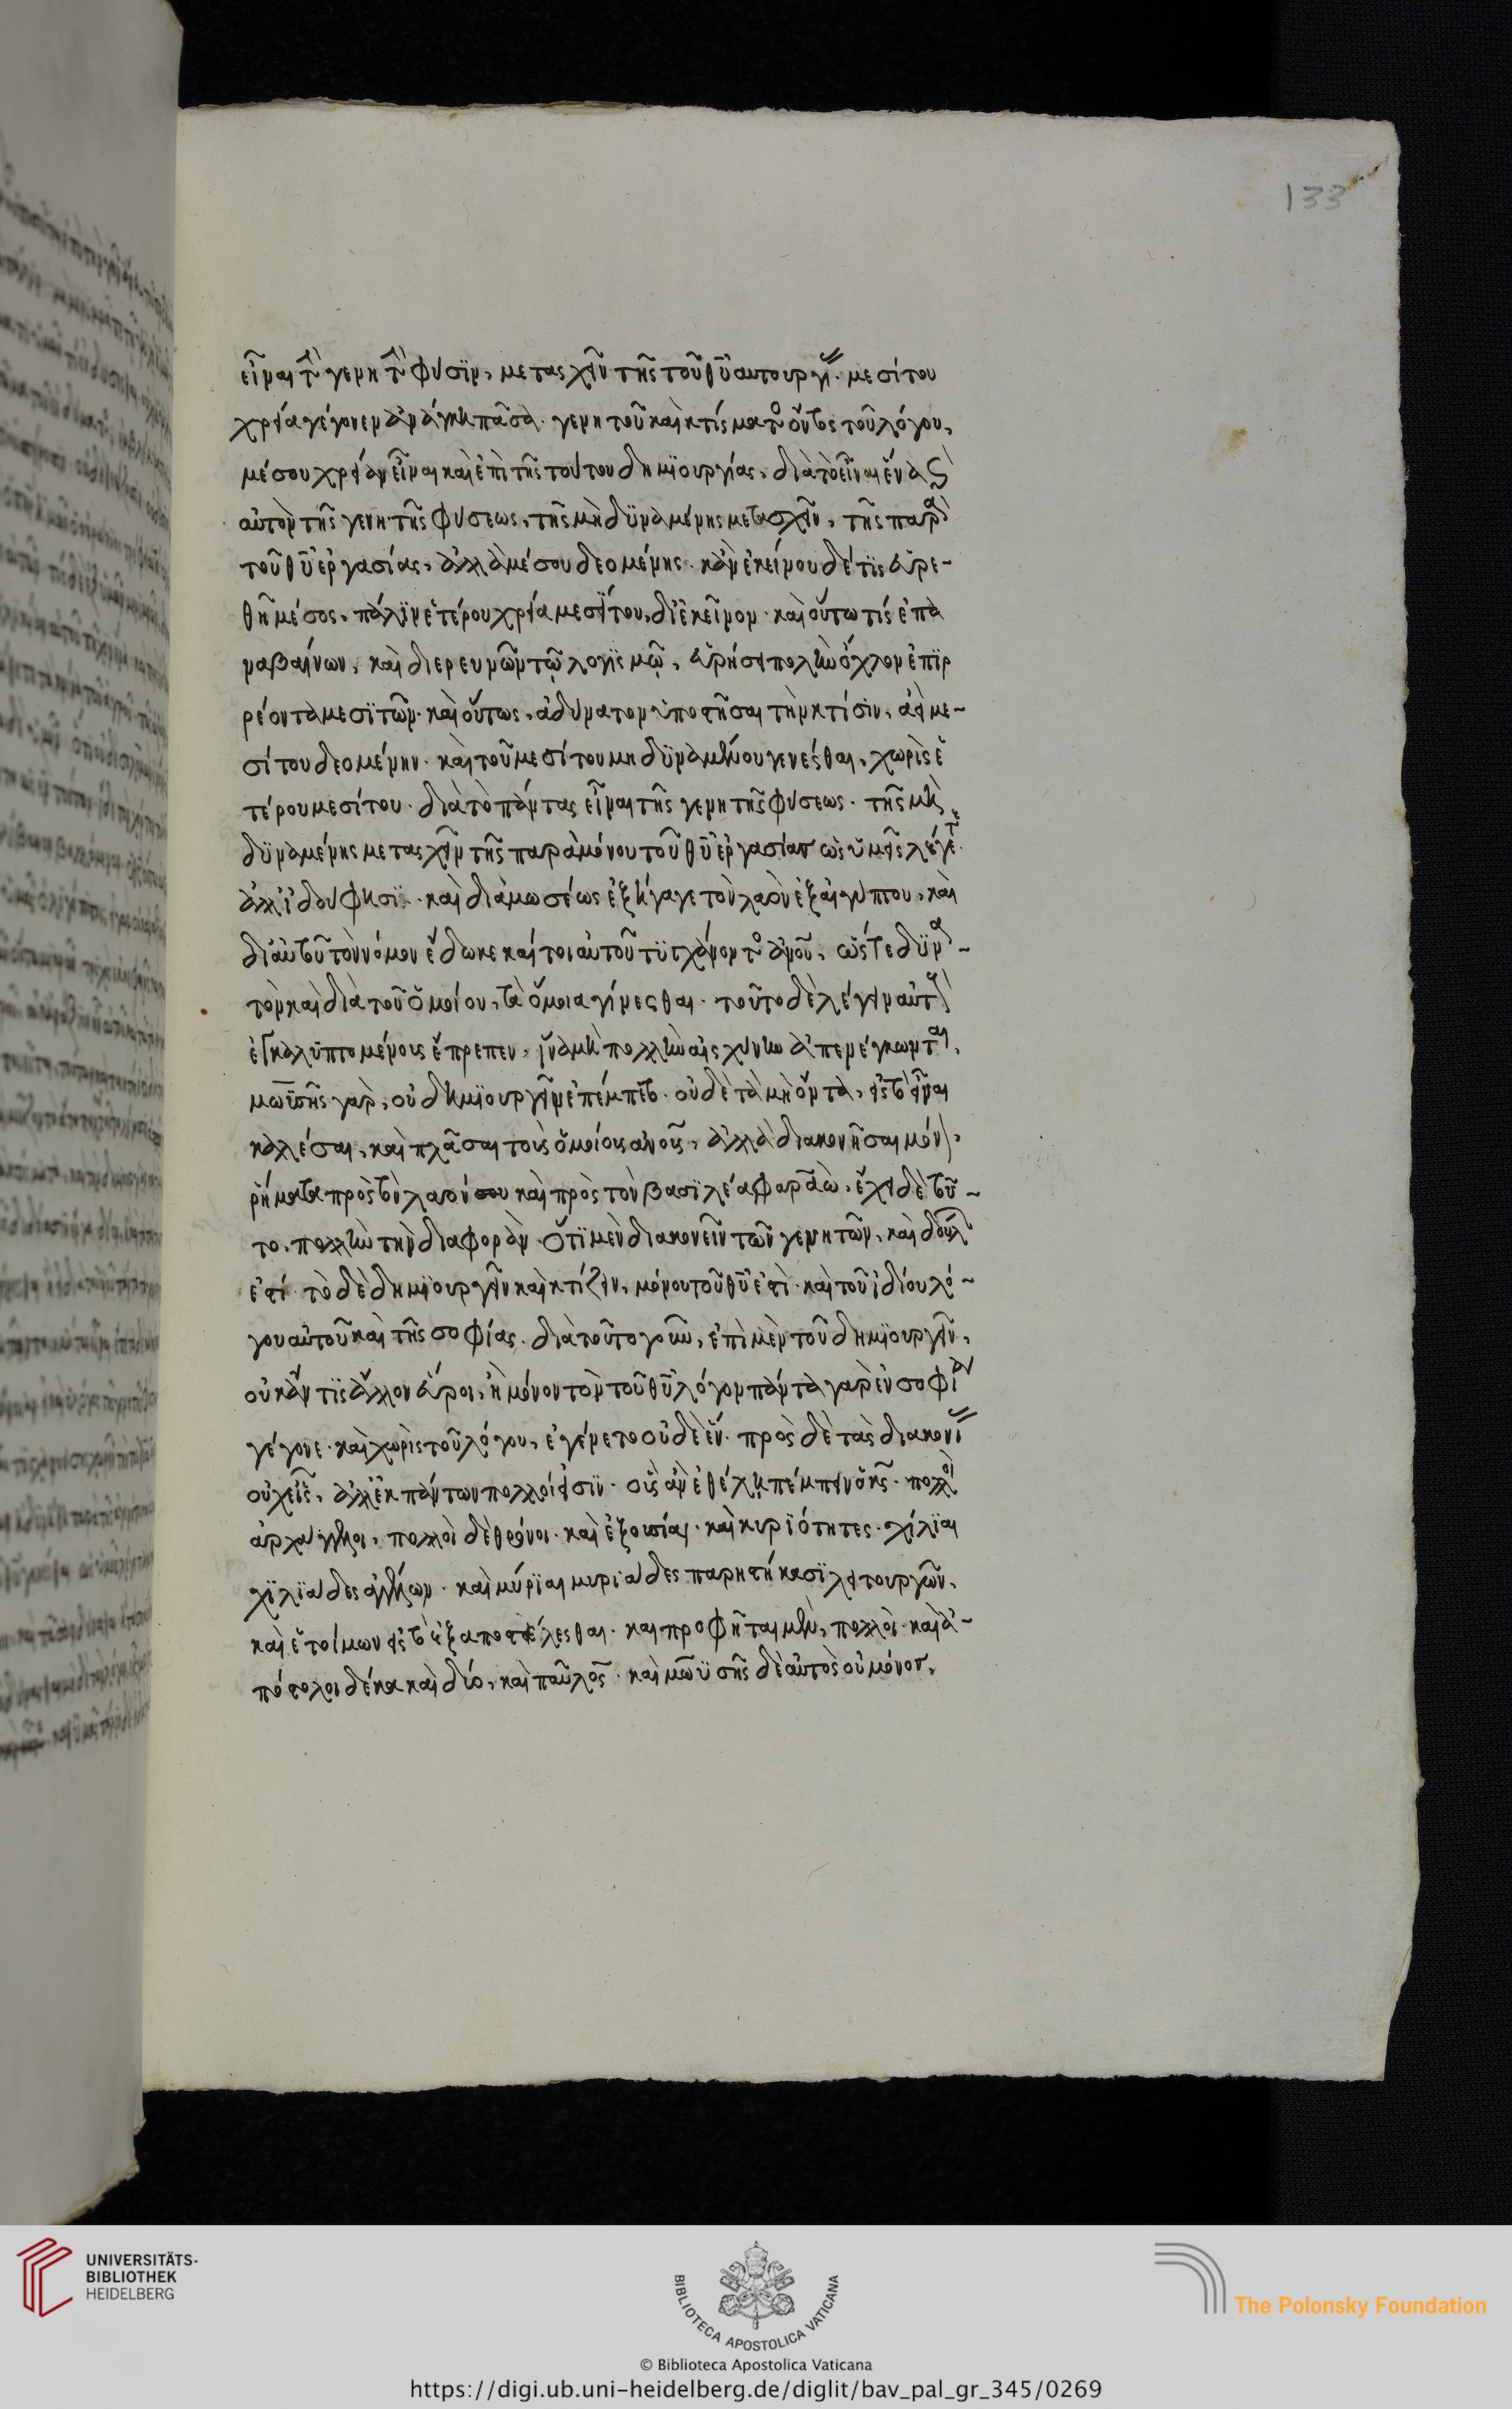 133
εἶναι τὴν γενητὴν φύσϊν, μετασχεῖν τῆς τοῦ θῦ αυτουργί(ας)· μεσίτου
χρεία γέγονεν ἀνάγκη πᾶσα· γενητοῦ καὶ κτίσματος ὄντος τοῦ λόγου,
μέσου χρείαν εἶναι καὶ ἐπὶ τῆς τούτου δημϊουργίας, διὰ τὸ εἶναι ἕνα καὶ
αὐτὸν τῆς γενητῆς φύσεως, τῆς μὴ δϋναμένης μετασχεῖν, τῆς παρὰ
τοῦ θῦ ἐργασίας, ἀλλὰ μέσου δεομένης. κἀν ἐκείνου δέ τϊς εὑρε-
θῆ μέσος, πάλϊν ἑτέρου χρεία μεσίτου, δι' ἐκεῖνον· καὶ οὕτω τίς ἐπα
ναβαίνων, καὶ διερευνῶν τῷ λογϊσμῷ, εὑρήσει πολὺν ὄχλον ἐπϊρ
ρέοντα μεσϊτῶν· καὶ οὕτως, ἀδύνατον ὑποστῆσαι τὴν κτίσϊν, ἀεὶ με-
σίτου δεομένην· καὶ τοῦ μεσίτου μη δϋναμένου γενέσθαι, χωρὶς ἑ
τέρου μεσίτου· διὰ τὸ πάντας εἶναι τῆς γενητῆς φύσεως· τῆς μὴ
δϋναμένης μετασχεῖν τῆς παρὰ μόνου τοῦ θῦ ἐργασίας ὡς ὑμεῖς λέγετε·
ἀλλ' ἰδού φησϊ· καὶ διὰ μωσέως ἐξήγαγε τὸν λαὸν ἐξ αἰγύπτου, καὶ
δι' αὐτοῦ τὸν νόμον ἔδωκε καίτοι αὐτοῦ τϋγχάνοντος ἀνοῦ, ὥστε δϋνα-
τὸν καὶ διὰ τοῦ ὁμοίου, τὰ ὅμοια γίνεσθαι· τοῦτο δὲ λέγειν αὐτοὺς
ἐγκαλϋπτομένοις ἔπρεπεν, ἵνα μὴ πολλὴν αἰσχύνην ἀπενέγκωνται,
μωϋσῆς γαρ, οὐ δημϊουργεῖν ἐπέμπετο· οὐδὲ τὰ μὴ ὄντα, εἰς τὸ εἶναι
καλέσαι, καὶ πλᾶσαι τοὺς ὁμοίους ανους, ἀλλὰ διακονῆσαι μόνον,
ῥήματα πρὸς τὸν λαὸν καὶ πρὸς τὸν βασϊλέα φαραὼ, ἔχει δὲ τοῦ-
το, πολλὴν τὴν διαφοράν· ὅτϊ μὲν διακονεῖν τῶν γενητῶν, καὶ δούλων
ἐστί· τὸ δὲ δημϊουργεῖν καὶ κτίζειν, μόνου τοῦ θῦ ἐστὶ· καὶ τοῦ ἰδίου λό-
γου αὐτοῦ καὶ τῆς σοφίας. διὰ τοῦτο γοῦν, ἐπὶ μὲν τοῦ δημϊουργεῖν,
οὐκ ἄν τϊς ἄλλον εὕροι, ἢ μόνον τὸν τοῦ θῦ λόγον πάντα γαρ ἐν σοφίᾳ
γέγονε· καὶ χωρὶς τοῦ λόγου, ἐγένετο οὐδὲ ἕν· πρὸς δὲ τὰς διακονί(ας)
οὐχ εἷς, ἀλλ' ἐκ πάντων πολλοί εἰσϊν· οὓς ἀν ἐθέλῃ πέμπειν ὁ κς· πολλοὶ
ἀρχάγγελοι, πολλοὶ δὲ θρόνοι· καὶ ἐξουσίαι· καὶ κυριότητες· χίλϊαι
χϊλϊάδες ἀγγέλων· καὶ μύρϊαι μυρϊάδες παρηστήκασϊ λειτουργῶν,
καὶ ἕτοιμων εἰς τὸ ἐξαποστέλεσθαι· καὶ προφῆται μὲν, πολλοὶ· καὶ ἀ-
πόστολοι δέκα καὶ δύο, καὶ παῦλος· καὶ μωϋσῆς δὲ αὐτὸς οὐ μόνος,
UNIVERSITÄTS-
BIBLIOTHEK
HEIDELBERG
BIBLIOTECA APOSTOLICA VATICANA
The Polonsky Foundation
© Biblioteca Apostolica Vaticana
https://digi.ub.uni-heidelberg.de/diglit/bav_pal_gr_345/0269